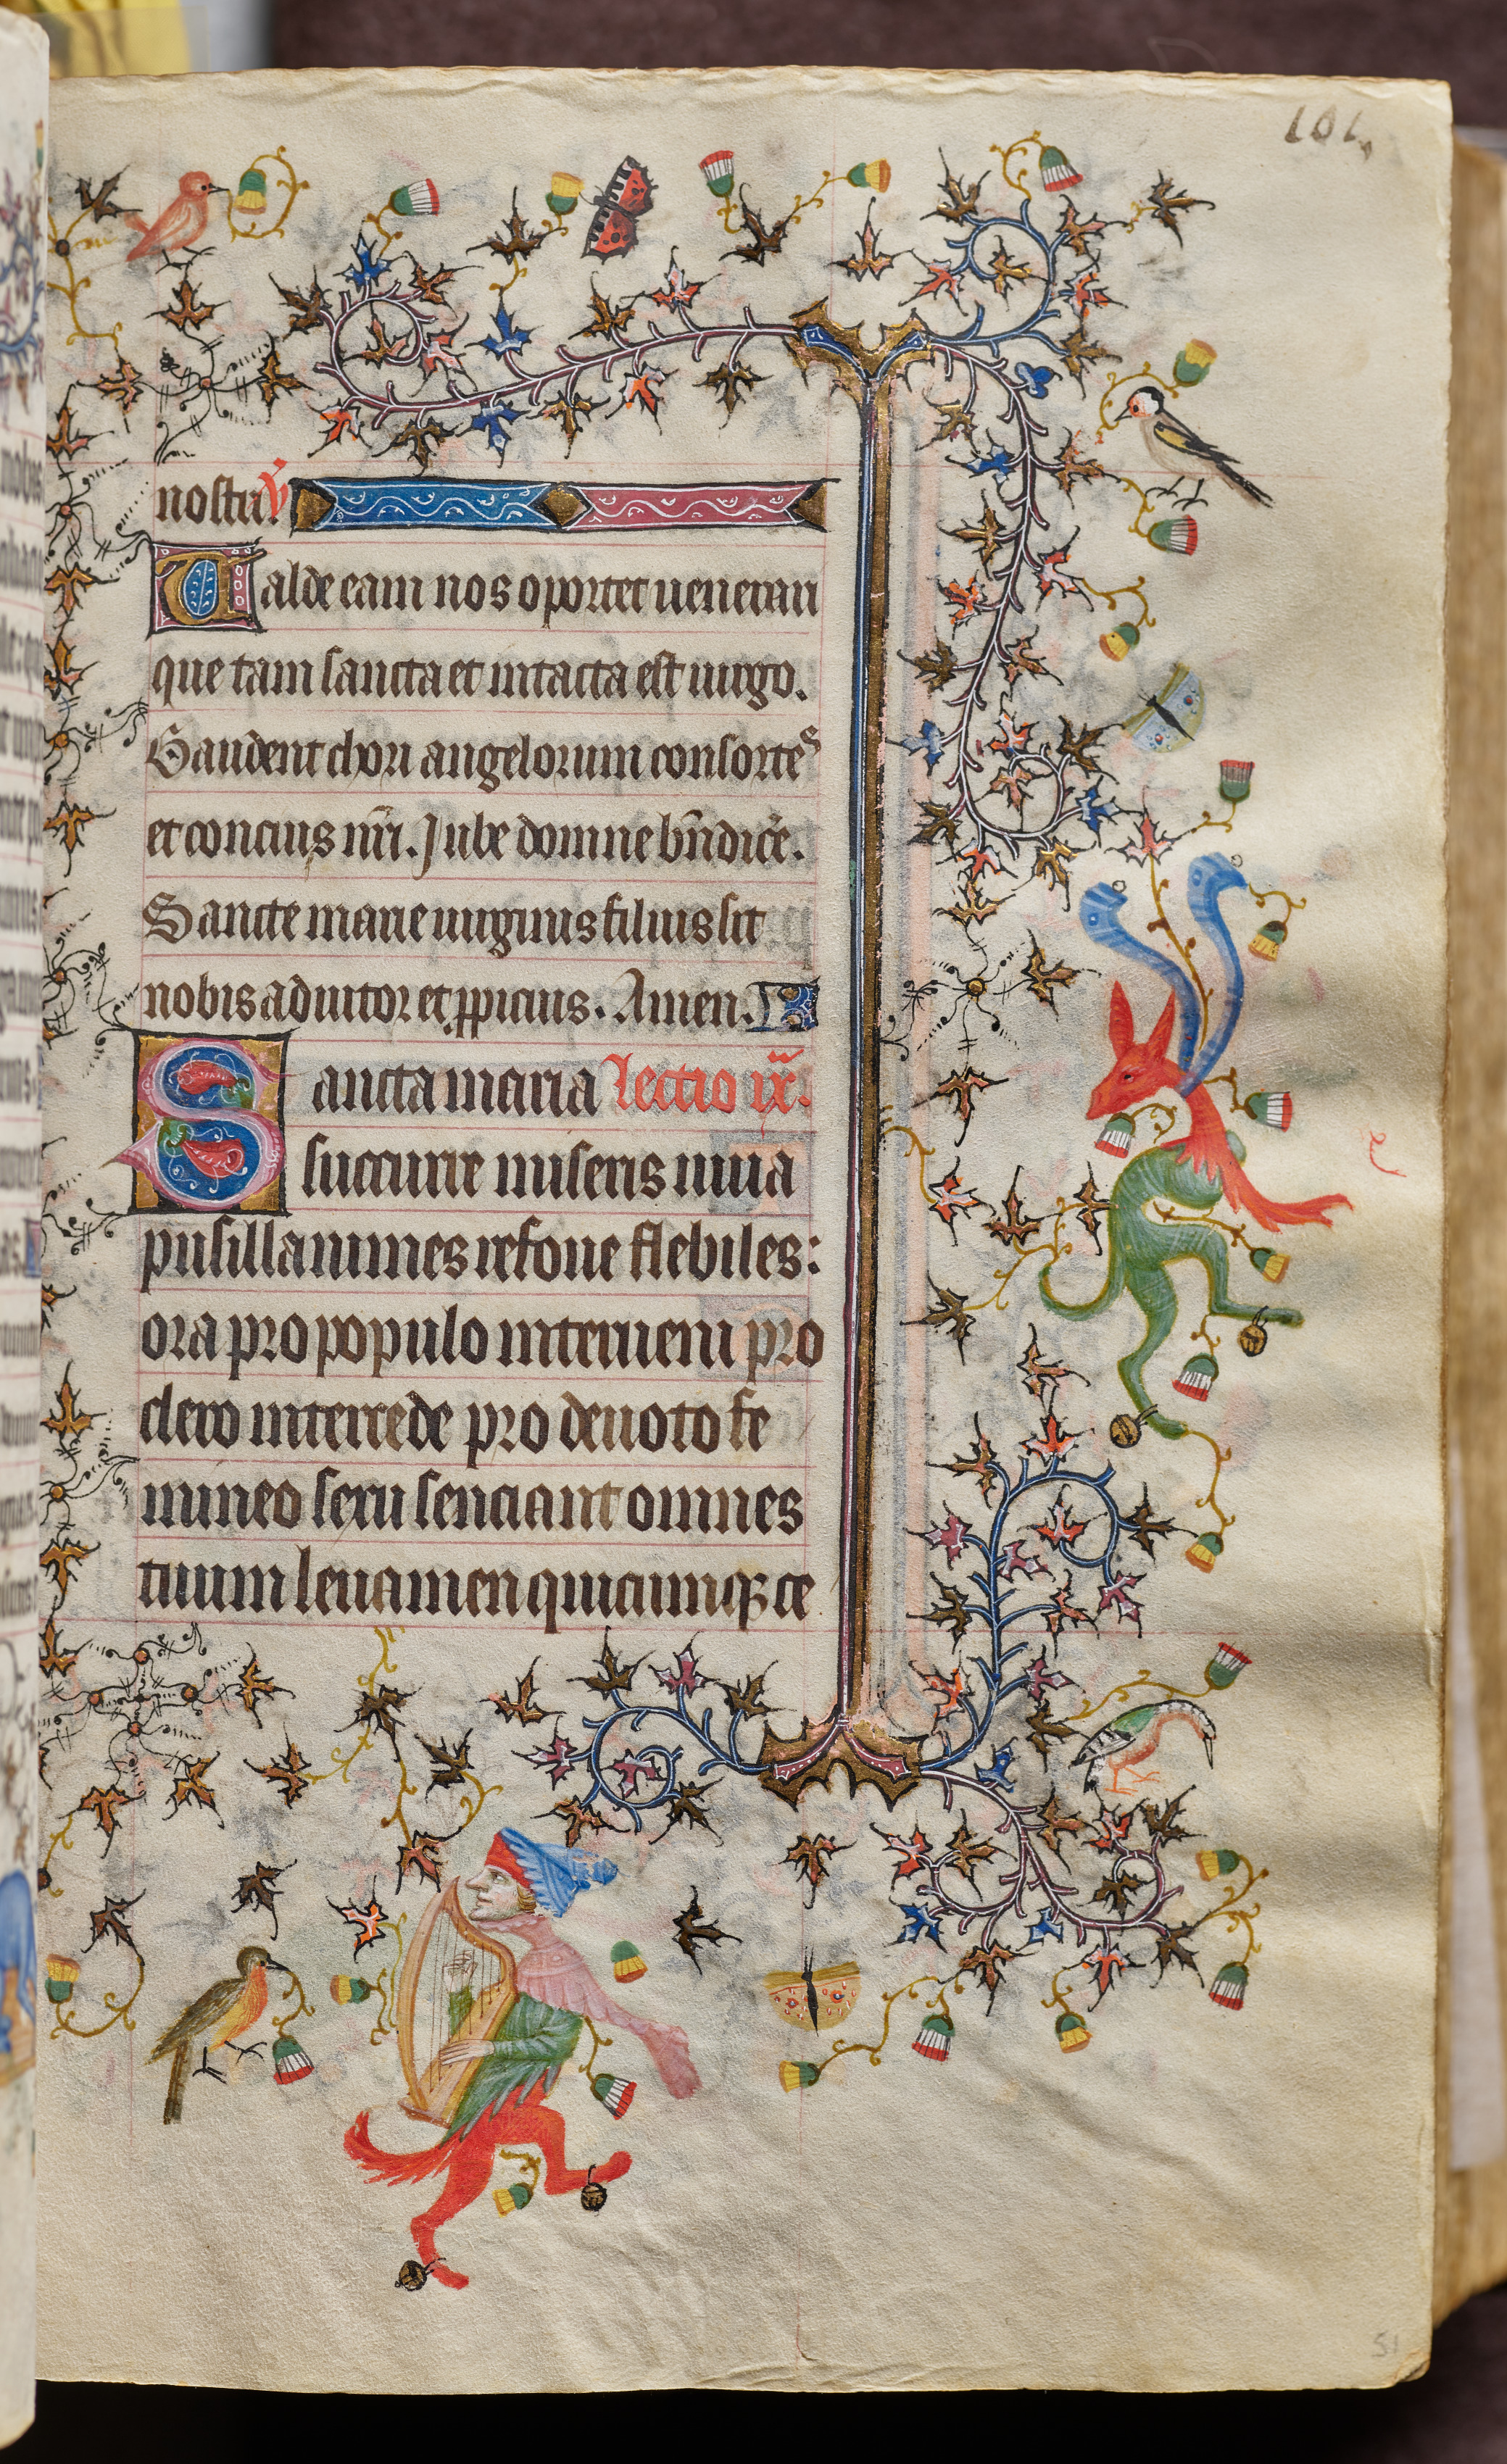 101.
nostri. V̾
Ualde eam nos oportet uenerari
que tam sancta et intacta est uirgo.
Gaudent chori angelorum consortes
et conciues nr̄i. Jube domne bn̄dicē.
Sancte marie uirginis filius sit
nobis adiutor et ꝓpicius. Amen.
Sancta maria lectio ix.
succurre miseris iuua
pusillanimes refoue flebiles:
ora pro populo interueni pro
clero intercede pro deuoto fe
mineo sexu senciant omnes
tuum leuamen quicumqꝫ ce
51